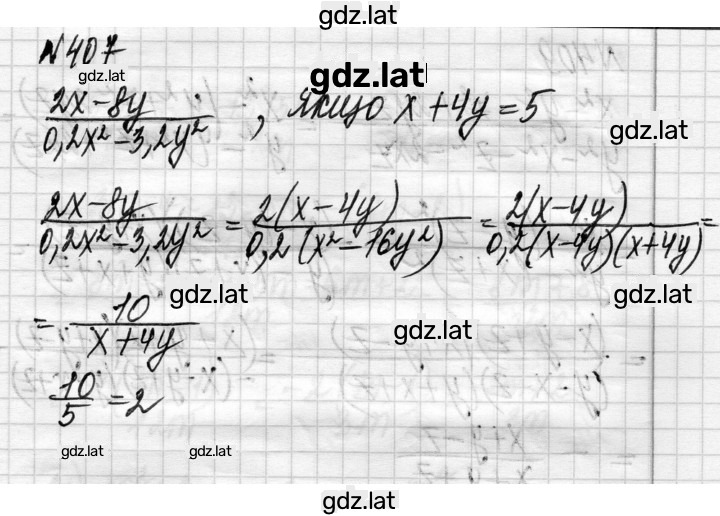 gdz.lat
N 407
gdz.lat
gdz.lat
(2x-8y)/(0,2x²-3,2y²), якщо x+4y=5
gdz.lat
(2x-8y)/(0,2x²-3,2y²) = 2(x-4y)/(0,2(x²-16y²)) = 2(x-4y)/(0,2(x-4y)(x+4y)) =
gdz.lat gdz.lat
= 10/(x+4y)
gdz.lat
10/5 = 2
gdz.lat gdz.lat
gdz.lat